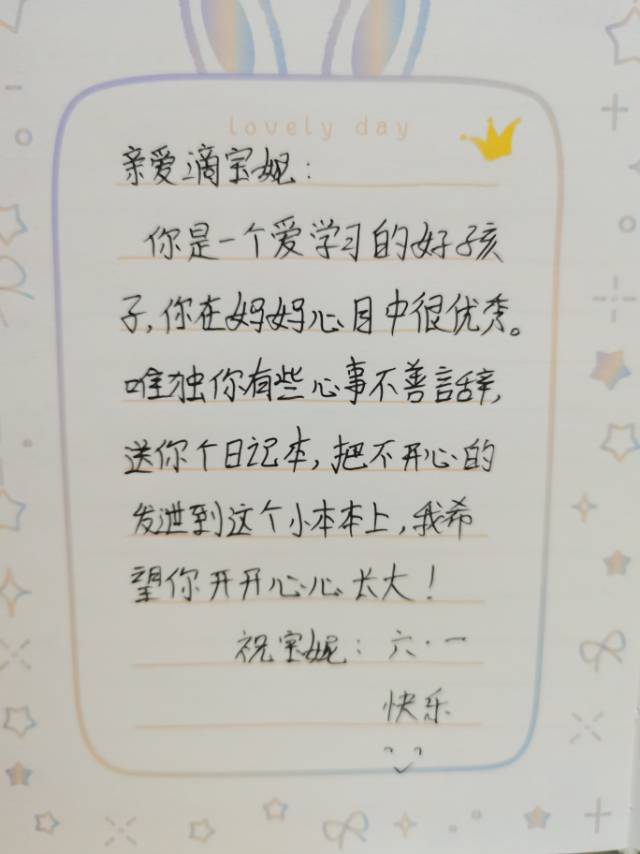 lovely day
亲爱滴宝妮：
你是一个爱学习的好孩
子,你在妈妈心目中很优秀。
唯独你有些心事不善言辞,
送你个日记本,把不开心的
发泄到这个小本本上,我希
望你开开心心长大！
祝宝妮：六·一
快乐